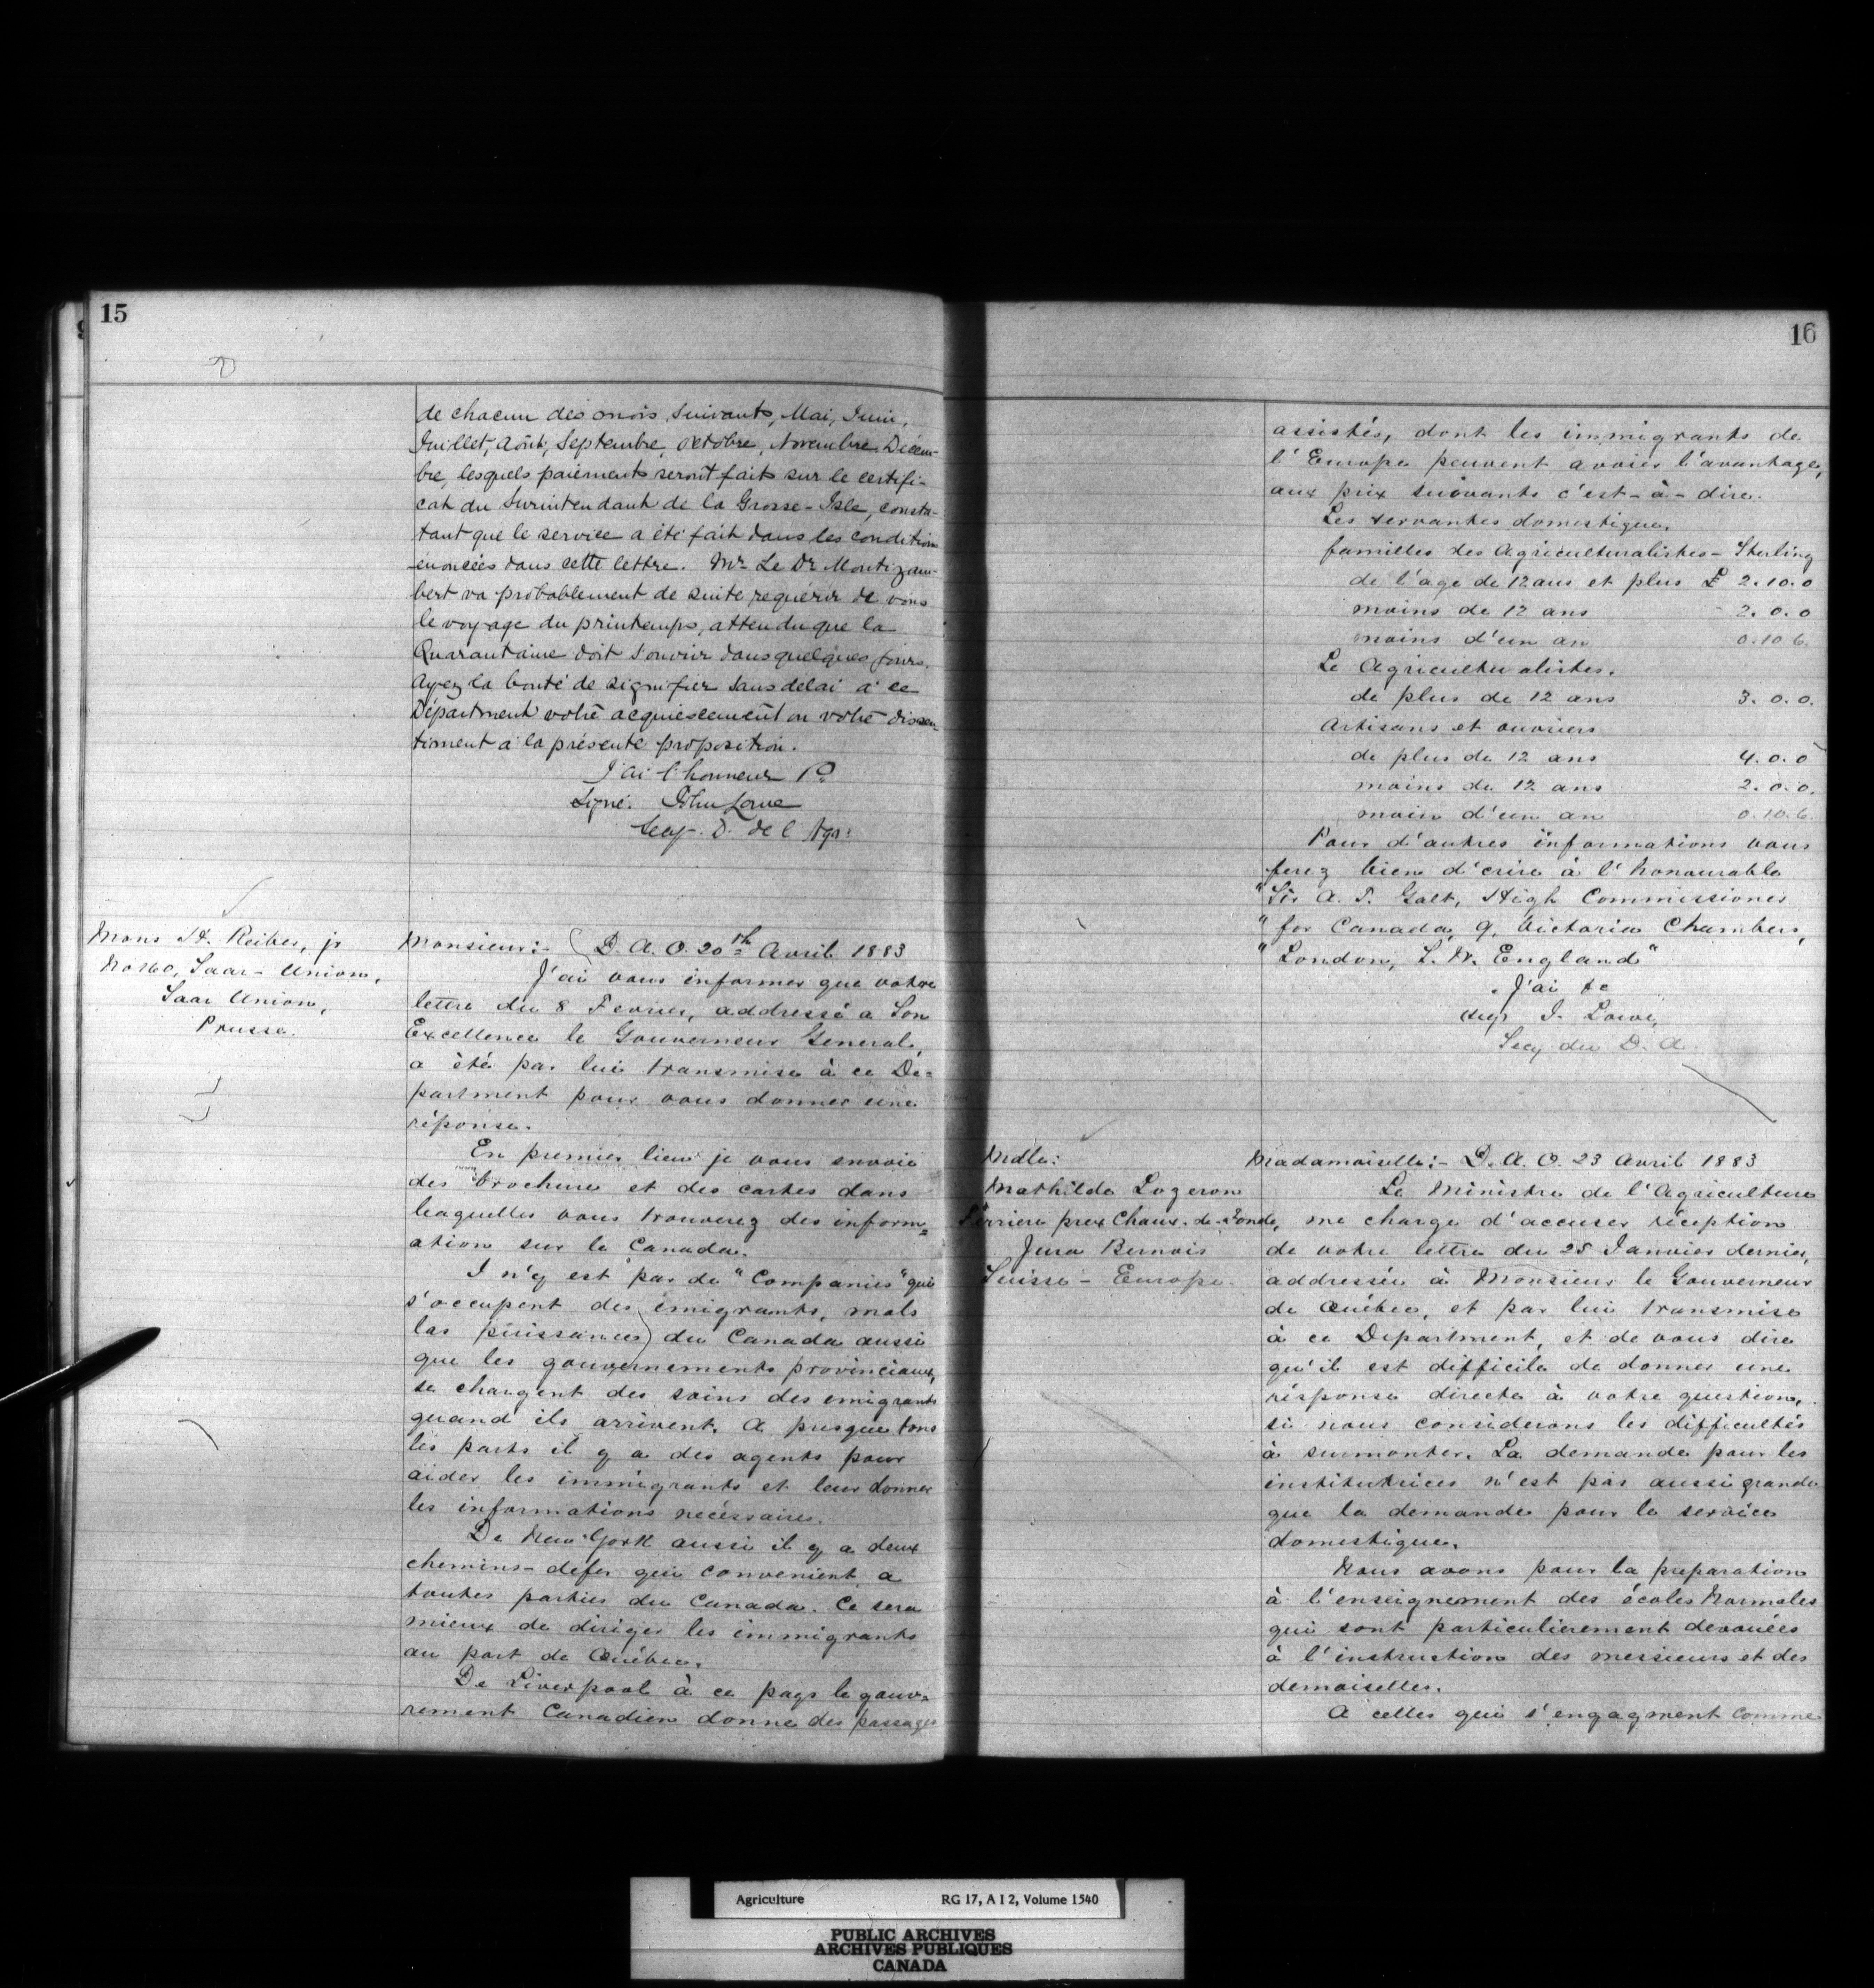 15
de chacun des mois suivants, Mai, Juin,
Juillet, Août, Septembre, Octobre, Novembre, Décem-
bre, lesquels paiements seront faits sur le certifi-
cat du Surintendant de la Grosse-Isle, consta-
tant que le service a été fait dans les condition
énoncées dans cette lettre. Mr. Le Dr. Montizam-
bert va probablement de suite requérir de vous
le voyage du printemps, attendu que la
Quarantaine doit s'ouvrir dans quelques jours.
Ayez la bonté de signifier sans delai à ce
Départment votre acquiescement ou votre dissen-
timent à la présente proposition.
J'ai l'honneur
Signé. John Lowe
Secy. D. de l'Agr:
Mons H. Reibes, jr
No 160, Saar-Union,
Saar Union,
Prusse.
Monsieur:- D. A. O. 20th Avril 1883
J'ai vous informer que votre
lettre du 8 Fevrier, addressé a Son
Excellence le Gouverneur General,
a été par lui transmise à ce De=
partment pour vous donner une
réponse.
En premier lieu je vous envoie
des brochure et des cartes dans
leaquelles vous trouverez des inform=
ation sur le Canada.
I n'y est pas de "Companies" qui
s'occupent des émigrants, mals
las puissances du Canada aussi
que les gouvernements provinciaux,
se chargent des soins des emigrants
quand ils arrivent. A presque tous
les ports il y a des agents pour
aider les immigrants et leur donner
les informations necéssaires.
De New York aussi il y a deux
chemins-defer qui convenient a
toutes parties du Canada. Ce sera
mieux de diriger les immigrants
au port de Québec.
De Liverpool à ce pays le gouv=
rement Canadien donne des passages
16
assistés, dont les immigrants de
l'Europe peuvent avoier l'avantage,
aux prix suivants c'est-à-dire.
Les servantes domestique,
familles des Agriculturalistes - Sterling
de l'age de 12 ans et plus £ 2.10.0
moins de 12 ans 2.0.0
moins d'un an 0.10.6.
Le Agriculturalistes.
de plus de 12 ans 3.0.0.
Artisans et ouvriers
de plus de 12 ans 4.0.0
moins de 12 ans 2.0.0.
moin d'un an 0.10.6.
Pour d'autres informations vous
ferez bien d'ecrire à l'honourable
"Sir A. T. Galt, High Commissioner
"for Canada, 9, Victoria Chambers,
"London, S. W. England"
J'ai &c
J. Lowe,
Secy du D. A.
Mdlle:
Mathilde Lozeron
Ferriere prex Chaux-de-Fonde,
Jura Bernois
Suisse - Europe.
Madamoiselle:- D. A. O. 23 Avril 1883
Le Ministre de l'Agriculture
me charge d'accuser réception
de votre lettre du 25 Janvier dernier,
addressée à Monsieur le Gouverneur
de Québec, et par lui transmise
à ce Department, et de vous dire
qu'il est difficile de donner une
résponse directe à votre question,
si nous considerons les difficultés
à surmonter. La demande pour les
institutrices n'est pas aussi grande
que la demande pour le service
domestique.
Nous avons pour la preparation
à l'enseignement des écoles Normales
qui sont particulierement devouées
à l'instruction des messieurs et des
demoiselles.
A celles qui s'engagment comme
Agriculture RG 17, A I 2, Volume 1540
PUBLIC ARCHIVES
ARCHIVES PUBLIQUES
CANADA